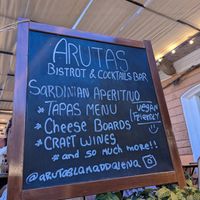 ARUTAS
BISTROT & COCKTAILS BAR
SARDINIAN APERITIVO
* TAPAS MENU
* CHEESE BOARDS
* CRAFT WINES
* and so much more!!
VEGAN
FRIENDLY
@arutaslamaddalena